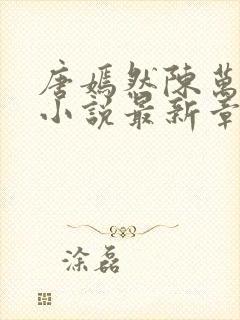 唐嫣然陳萬
小說最新章
涂磊